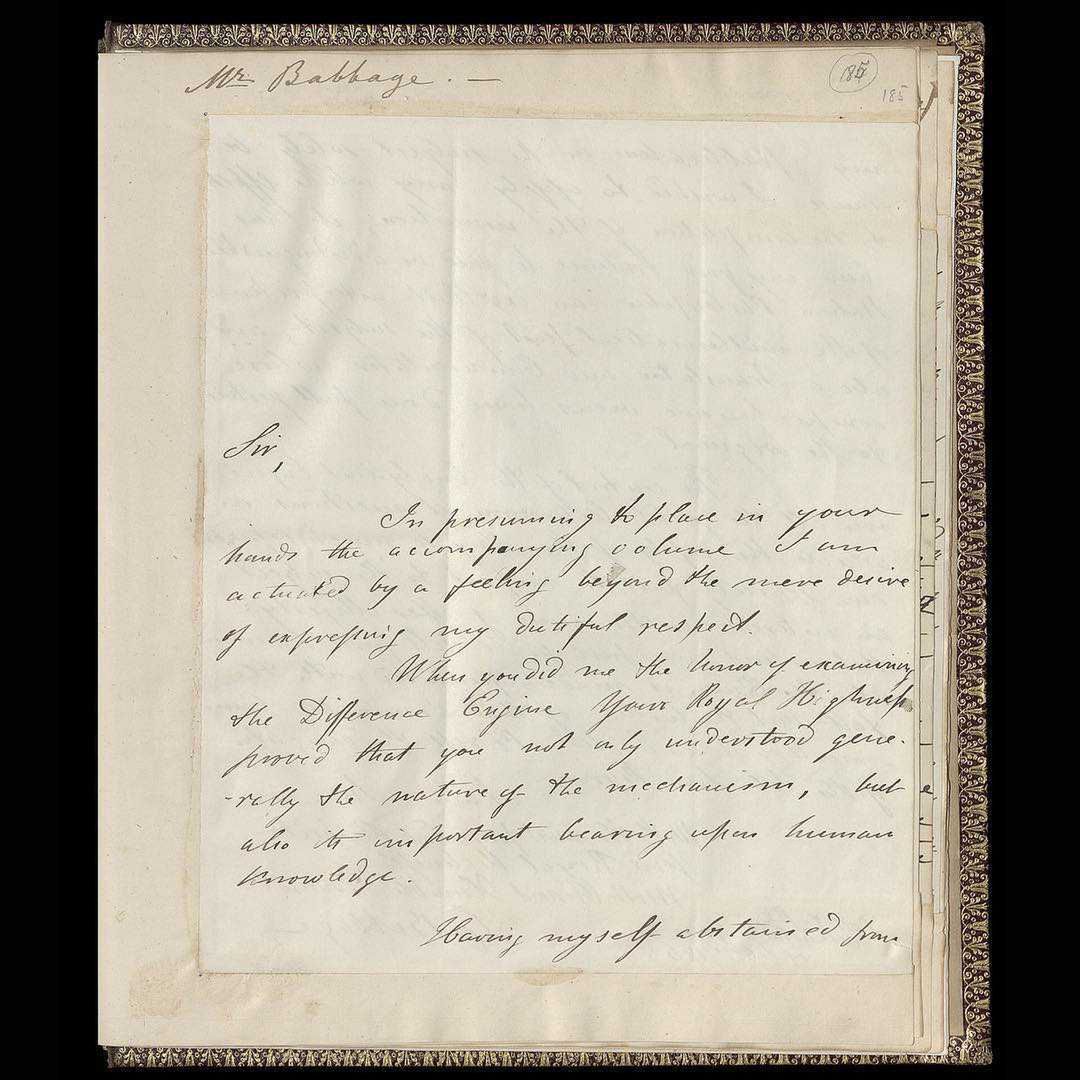 Mr Babbage . —
185
185
Sir,
In presuming to place in your
hands the accompanying volume I am
actuated by a feeling beyond the mere desire
of expressing my dutiful respect.
When you did me the honor of examining
the Difference Engine Your Royal Highness
proved that you not only understood gene-
-rally the nature of the mechanism, but
also its important bearing upon human
knowledge.
Having myself abstained from